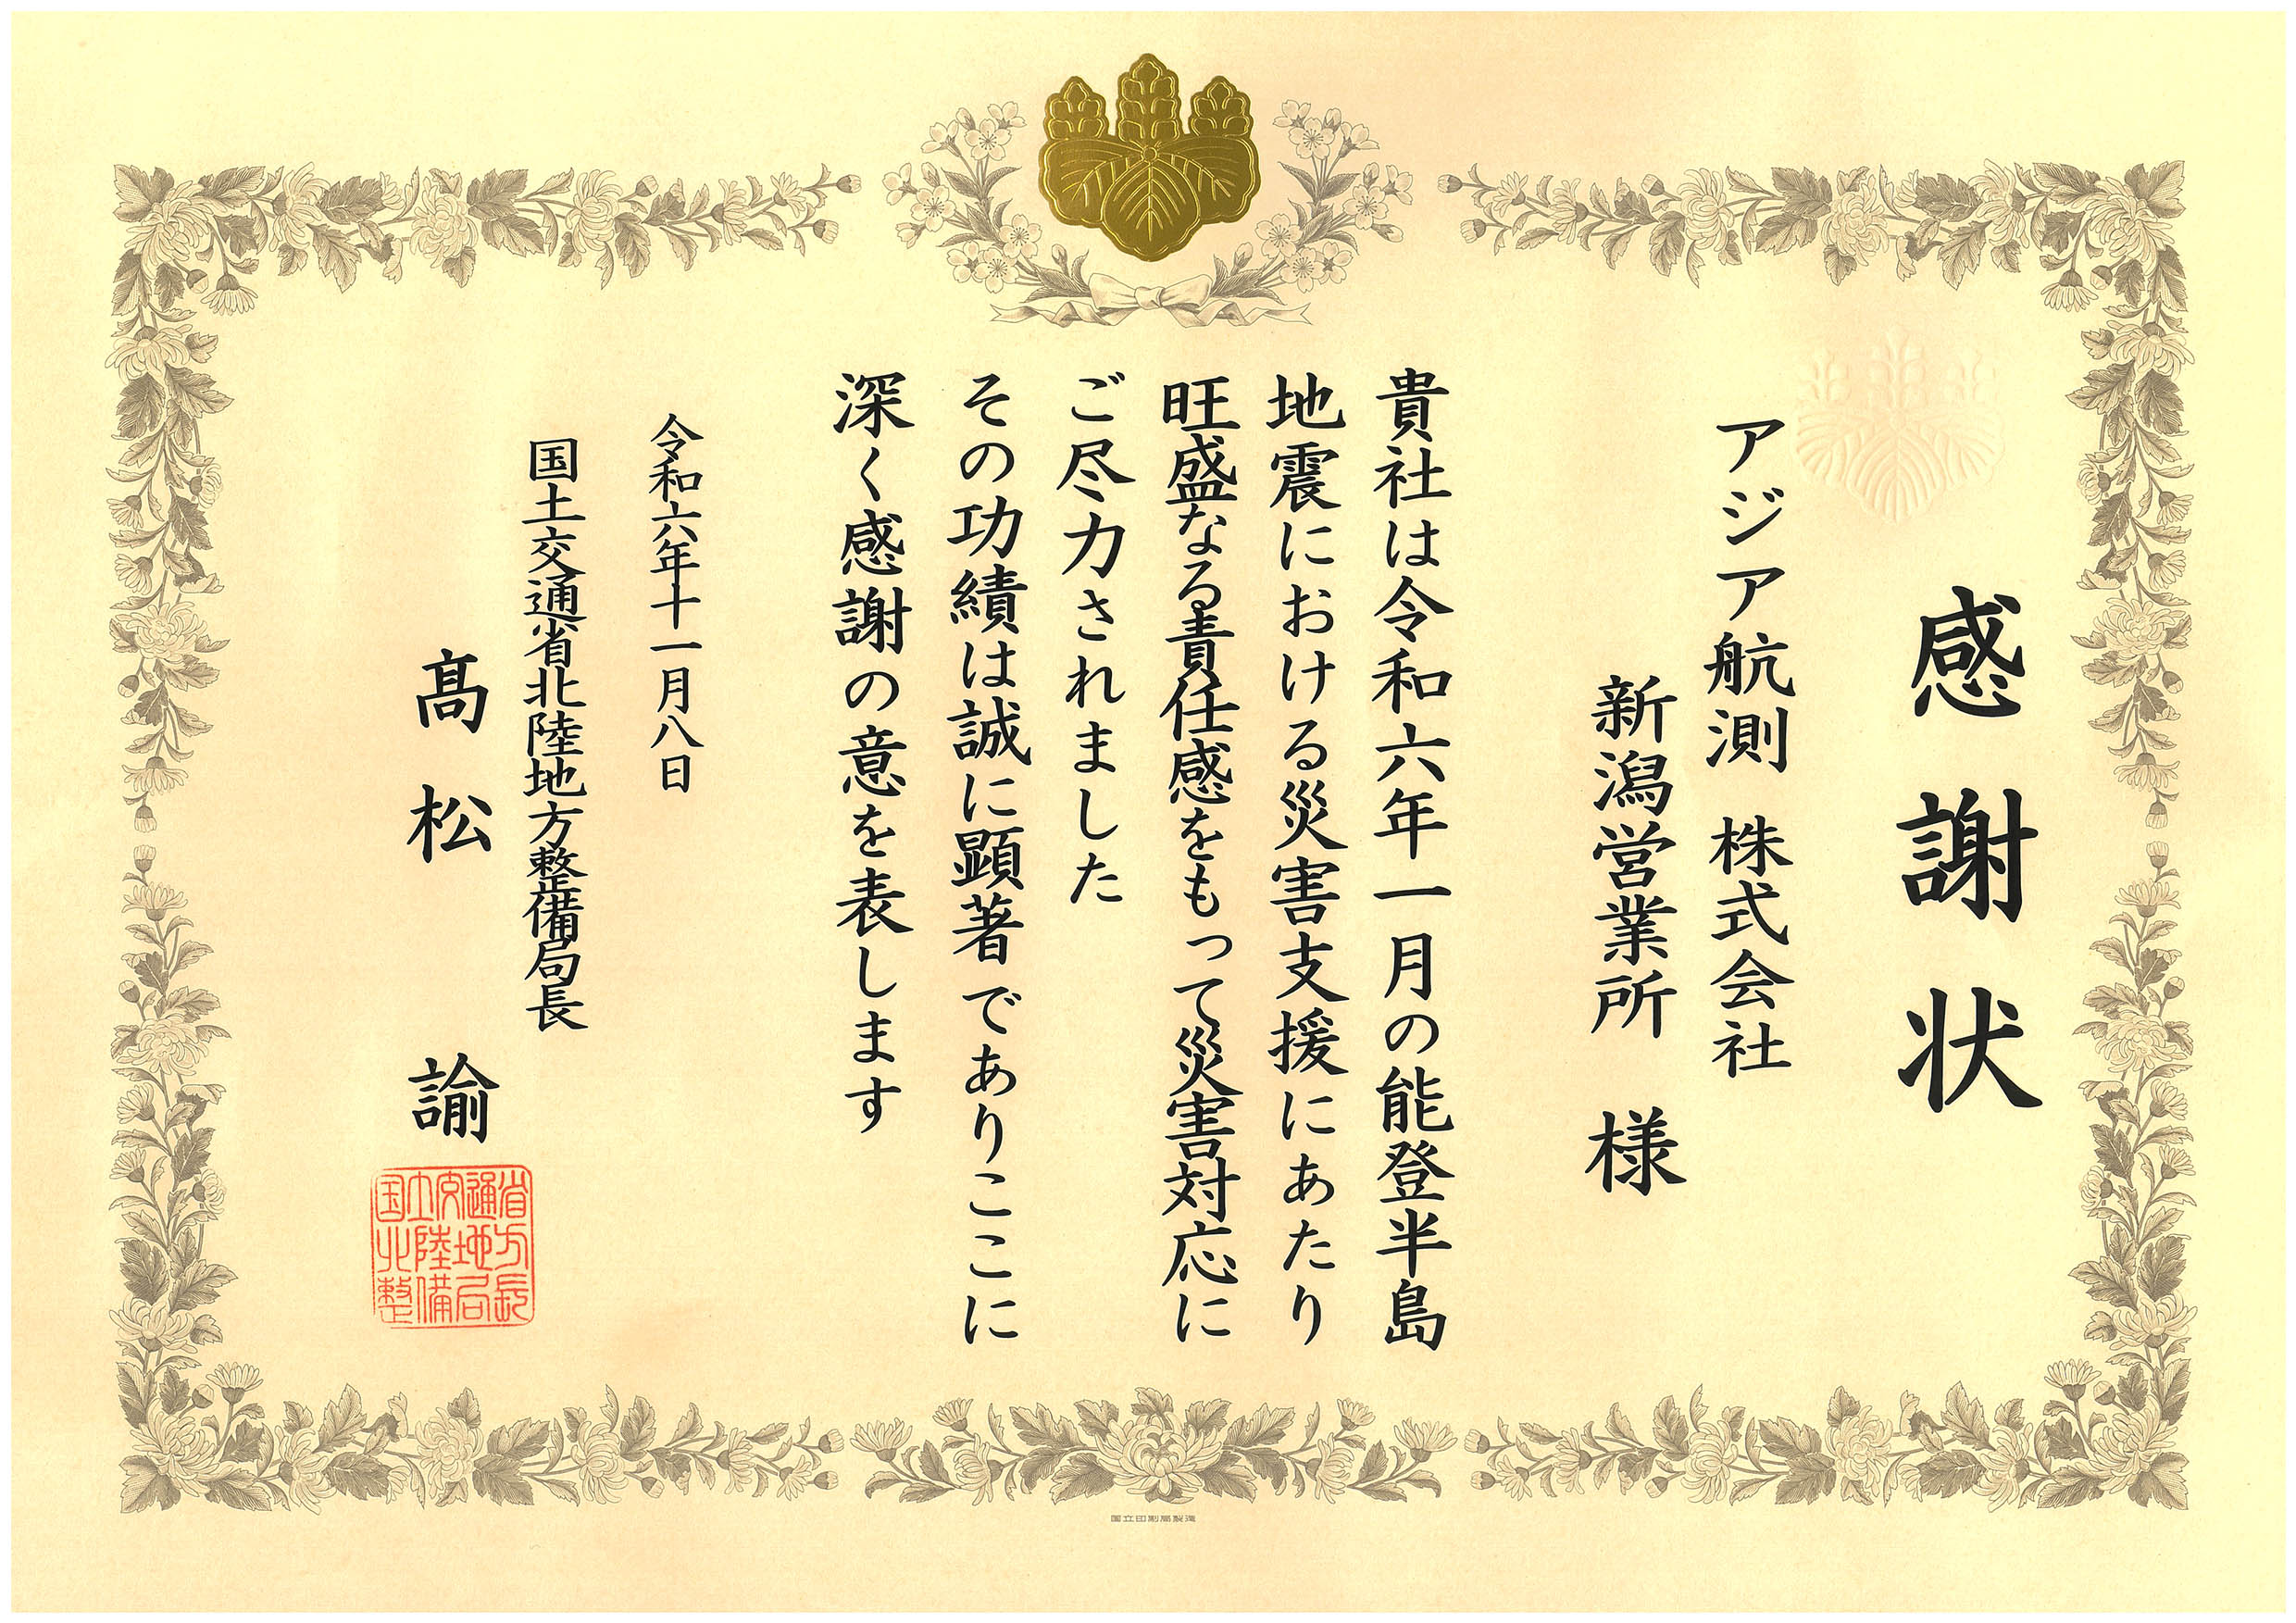 感謝状
アジア航測 株式会社
新潟営業所 様
貴社は令和六年一月の能登半島
地震における災害支援にあたり
旺盛なる責任感をもって災害対応に
ご尽力されました
その功績は誠に顕著でありここに
深く感謝の意を表します
令和六年十一月八日
国土交通省北陸地方整備局長
髙松 諭
国土交通省
北陸地方
整備局長
国立印刷局製造